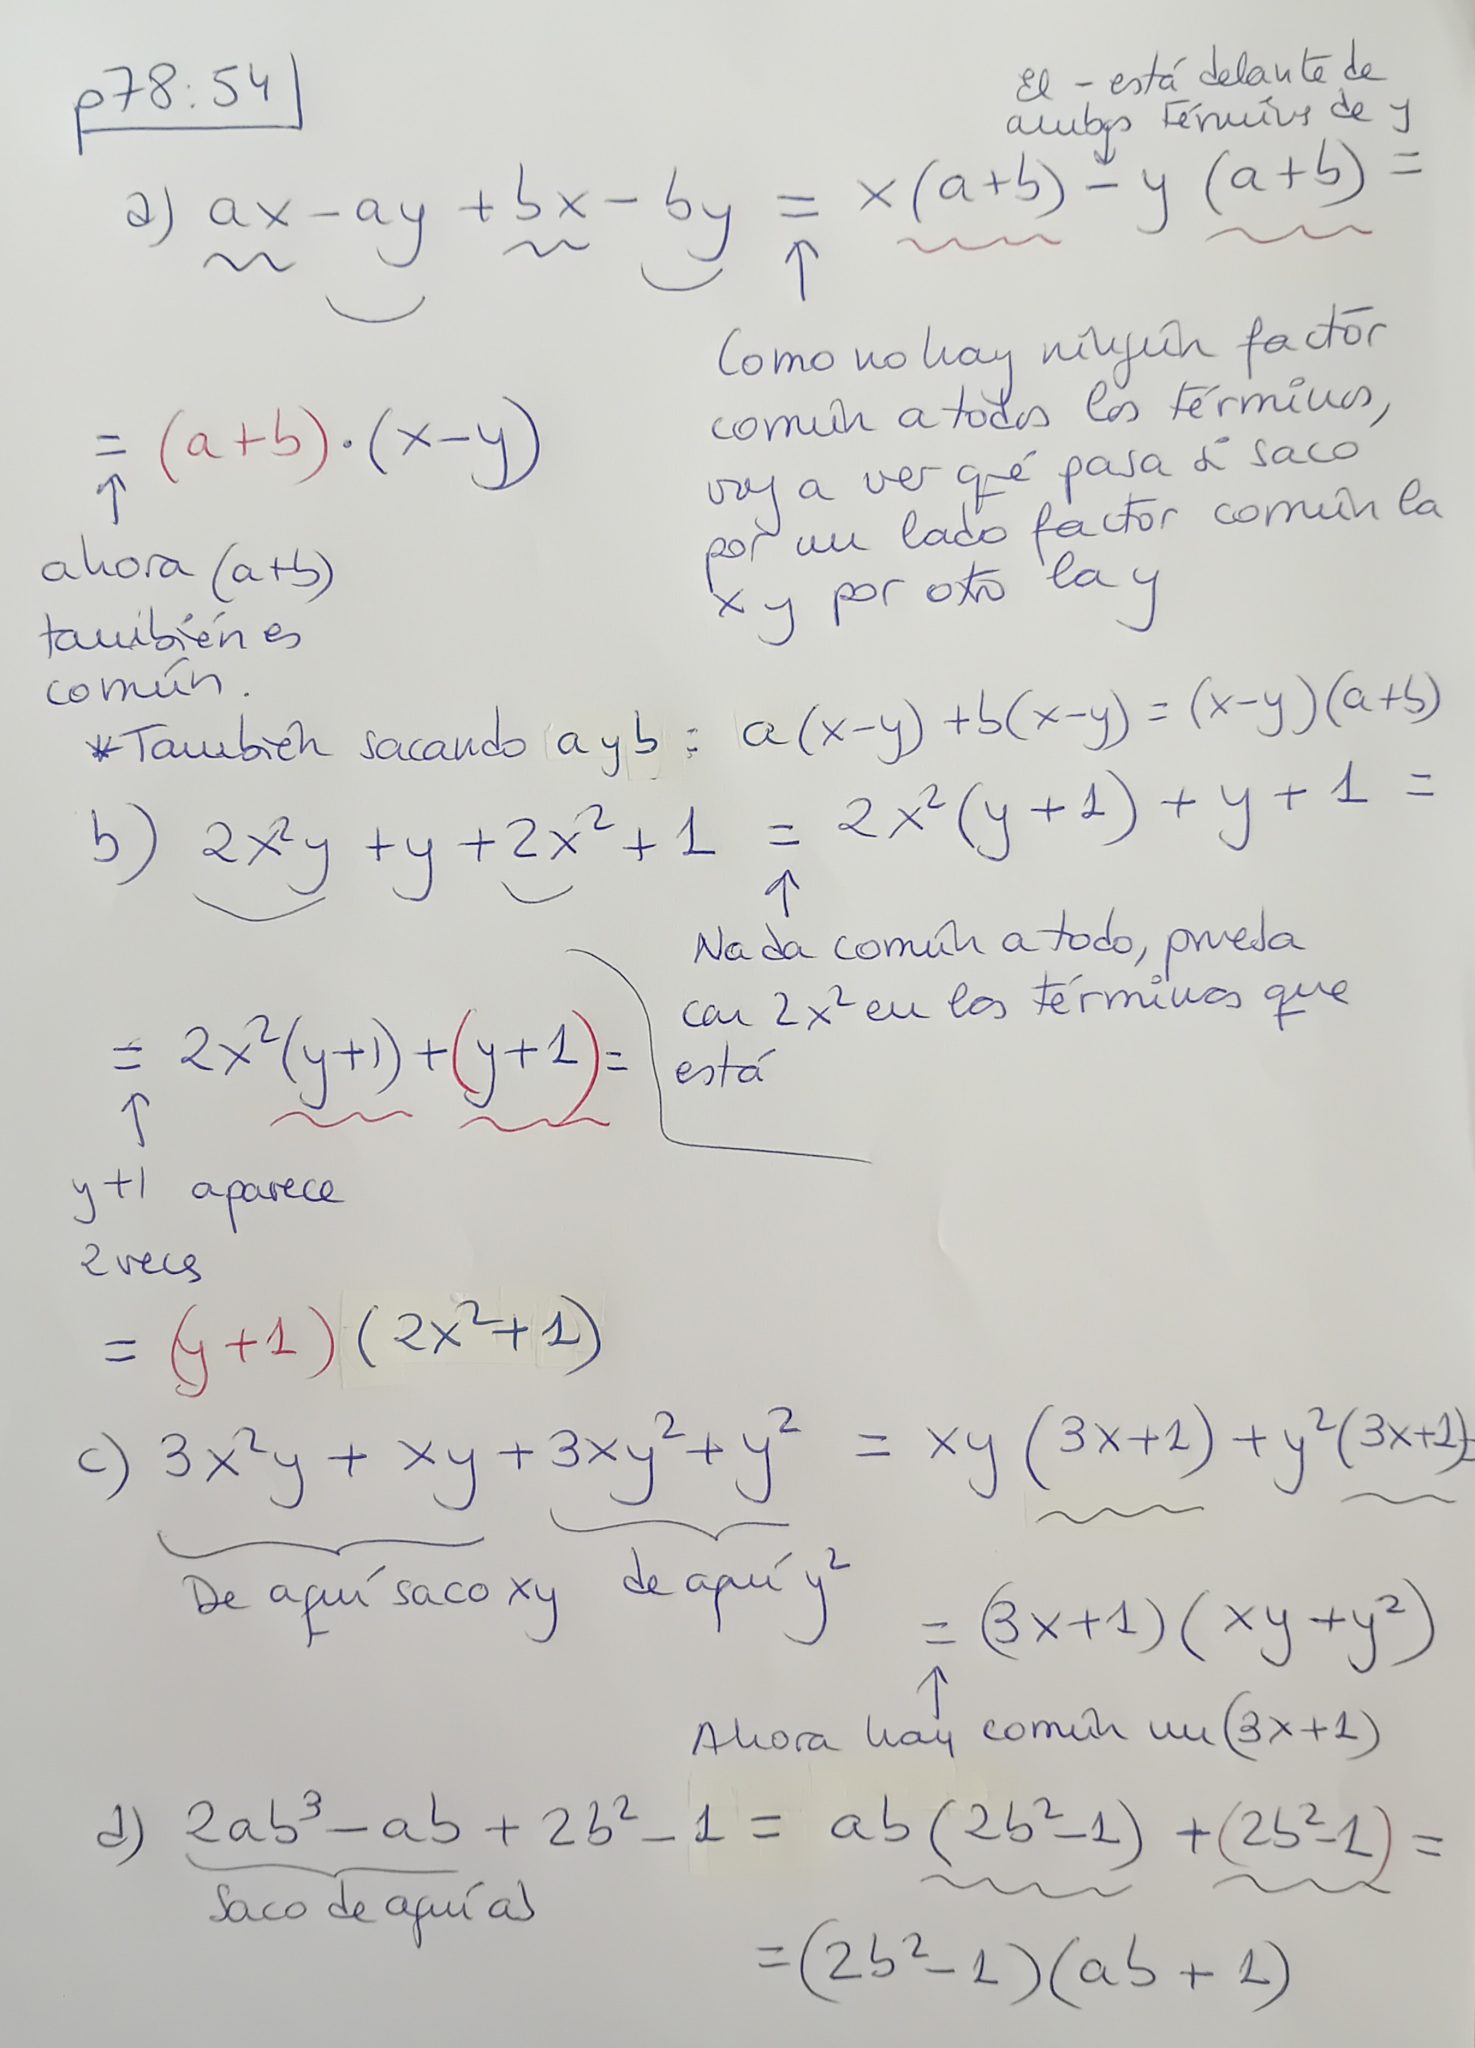 p78:54
El - está delante de
ambos términos de y
a) ax - ay + bx - by = x(a+b) - y (a+b) =
Como no hay ningún factor
común a todos los términos,
voy a ver qué pasa si saco
por un lado factor común la
x y por otro la y
= (a+b)·(x-y)
ahora (a+b)
también es
común.
*También sacando a y b: a(x-y) + b(x-y) = (x-y)(a+b)
b) 2x²y + y + 2x² + 1 = 2x²(y+1) + y + 1 =
Nada común a todo, prueba
con 2x² en los términos que
está
= 2x²(y+1) + (y+1) =
y+1 aparece
2 veces
= (y+1)(2x²+1)
c) 3x²y + xy + 3xy² + y² = xy(3x+1) + y²(3x+1) =
De aquí saco xy de aquí y²
= (3x+1)(xy+y²)
Ahora hay común un (3x+1)
d) 2ab³ - ab + 2b² - 1 = ab(2b²-1) + (2b²-1) =
Saco de aquí ab
= (2b²-1)(ab+1)